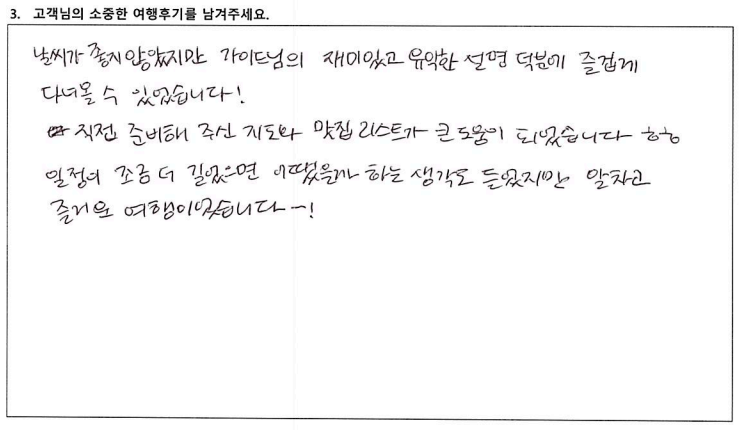 3. 고객님의 소중한 여행후기를 남겨주세요.
날씨가 좋지 않았지만 가이드님의 재미있고 유익한 설명 덕분에 즐겁게
다녀올 수 있었습니다!
직접 준비해 주신 지도와 맛집 리스트가 큰 도움이 되었습니다 ㅎㅎ
일정이 조금 더 길었으면 어땠을까 하는 생각도 들었지만 알차고
즐거운 여행이었습니다~!